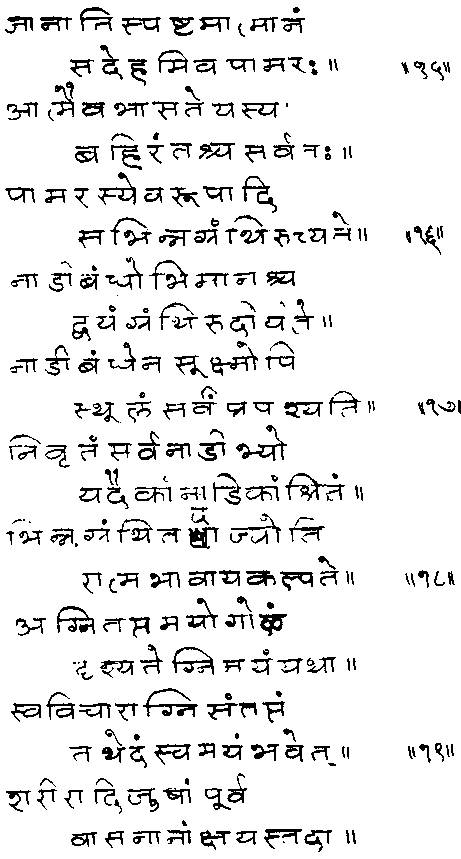 जानाति स्पष्टमात्मानं
सदेहमिव पामरः॥ ॥१५॥
आत्मैव भासते यस्य
बहिरंतश्च सर्वतः॥
पामरस्येव रूपादि
स भिन्नग्रंथिरुच्यते॥ ॥१६॥
नाडीबंधोभिमानश्च
द्वयं ग्रंथिरुदीर्यते॥
नाडीबंधेन सूक्ष्मोपि
स्थूलं सर्वं प्रपश्यति॥ ॥१७॥
निवृतं सर्वनाडीभ्यो
यदैकां नाडिकां श्रितं॥
भिन्नग्रंथितया ज्योति
रात्मभावाय कल्पते॥ ॥१८॥
अग्नितप्तमयोगोलं
दृश्यतेग्निमयं यथा॥
स्वविचाराग्निसंतप्तं
तथेदं स्वमयं भवेत्॥ ॥१९॥
शरीरादिजुषां पूर्व
वासनानां क्षयस्तदा॥